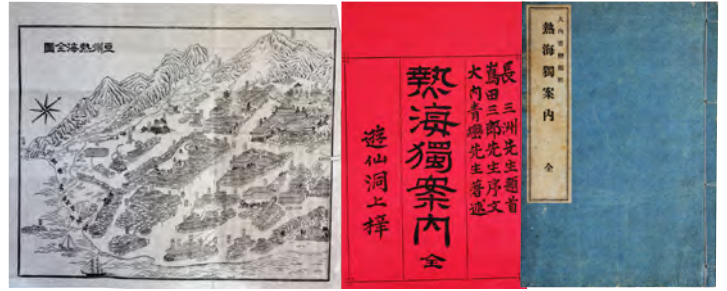 豆州熱海全圖
長 三洲先生題首
嶌田三郎先生序文
大内青巒先生著述
熱海獨案内 全
遊仙洞上梓
大内青巒
熱海獨案内 全